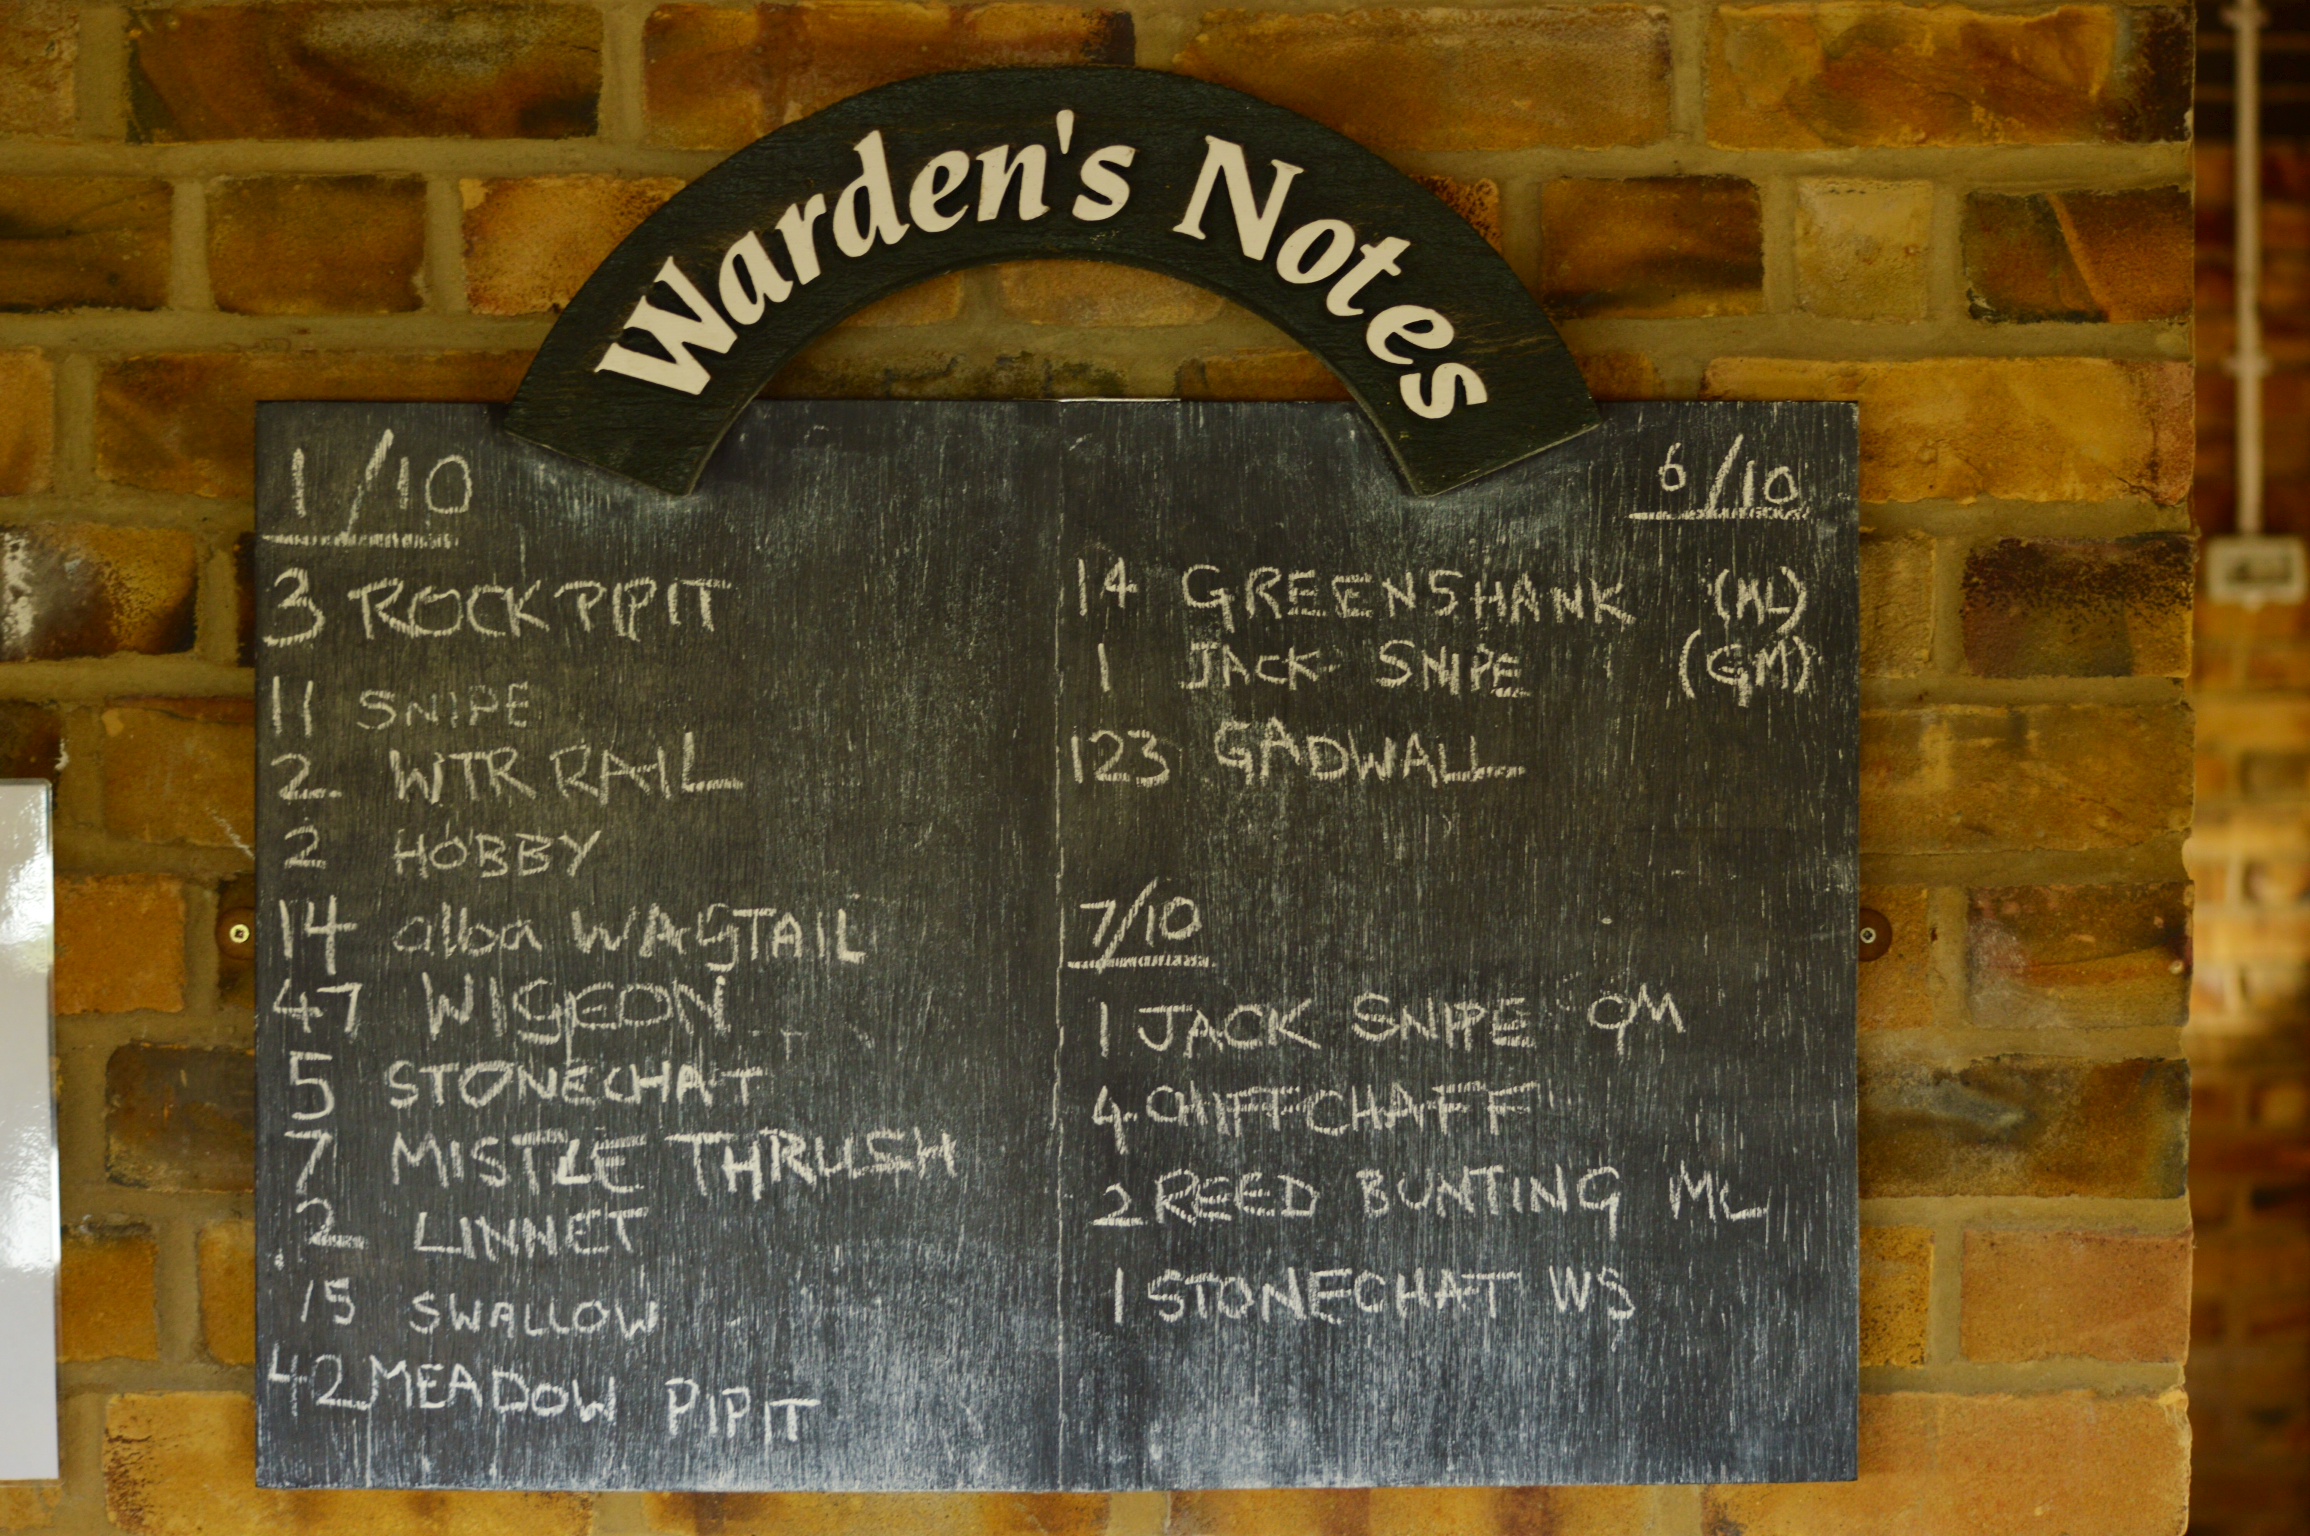 Warden's Notes
1/10
3 ROCK PIPIT
11 SNIPE
2 WTR RAIL
2 HOBBY
14 alba WAGTAIL
47 WIGEON
5 STONECHAT
7 MISTLE THRUSH
2 LINNET
15 SWALLOW
42 MEADOW PIPIT
6/10
14 GREENSHANK (ML)
1 JACK SNIPE (GM)
123 GADWALL
7/10
1 JACK SNIPE GM
4 CHIFFCHAFF
2 REED BUNTING ML
1 STONECHAT WS